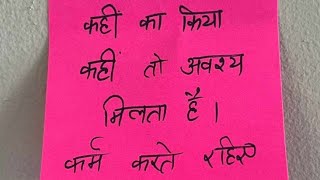 कहीं का किया
कहीं तो अवश्य
मिलता है।
कर्म करते रहिए